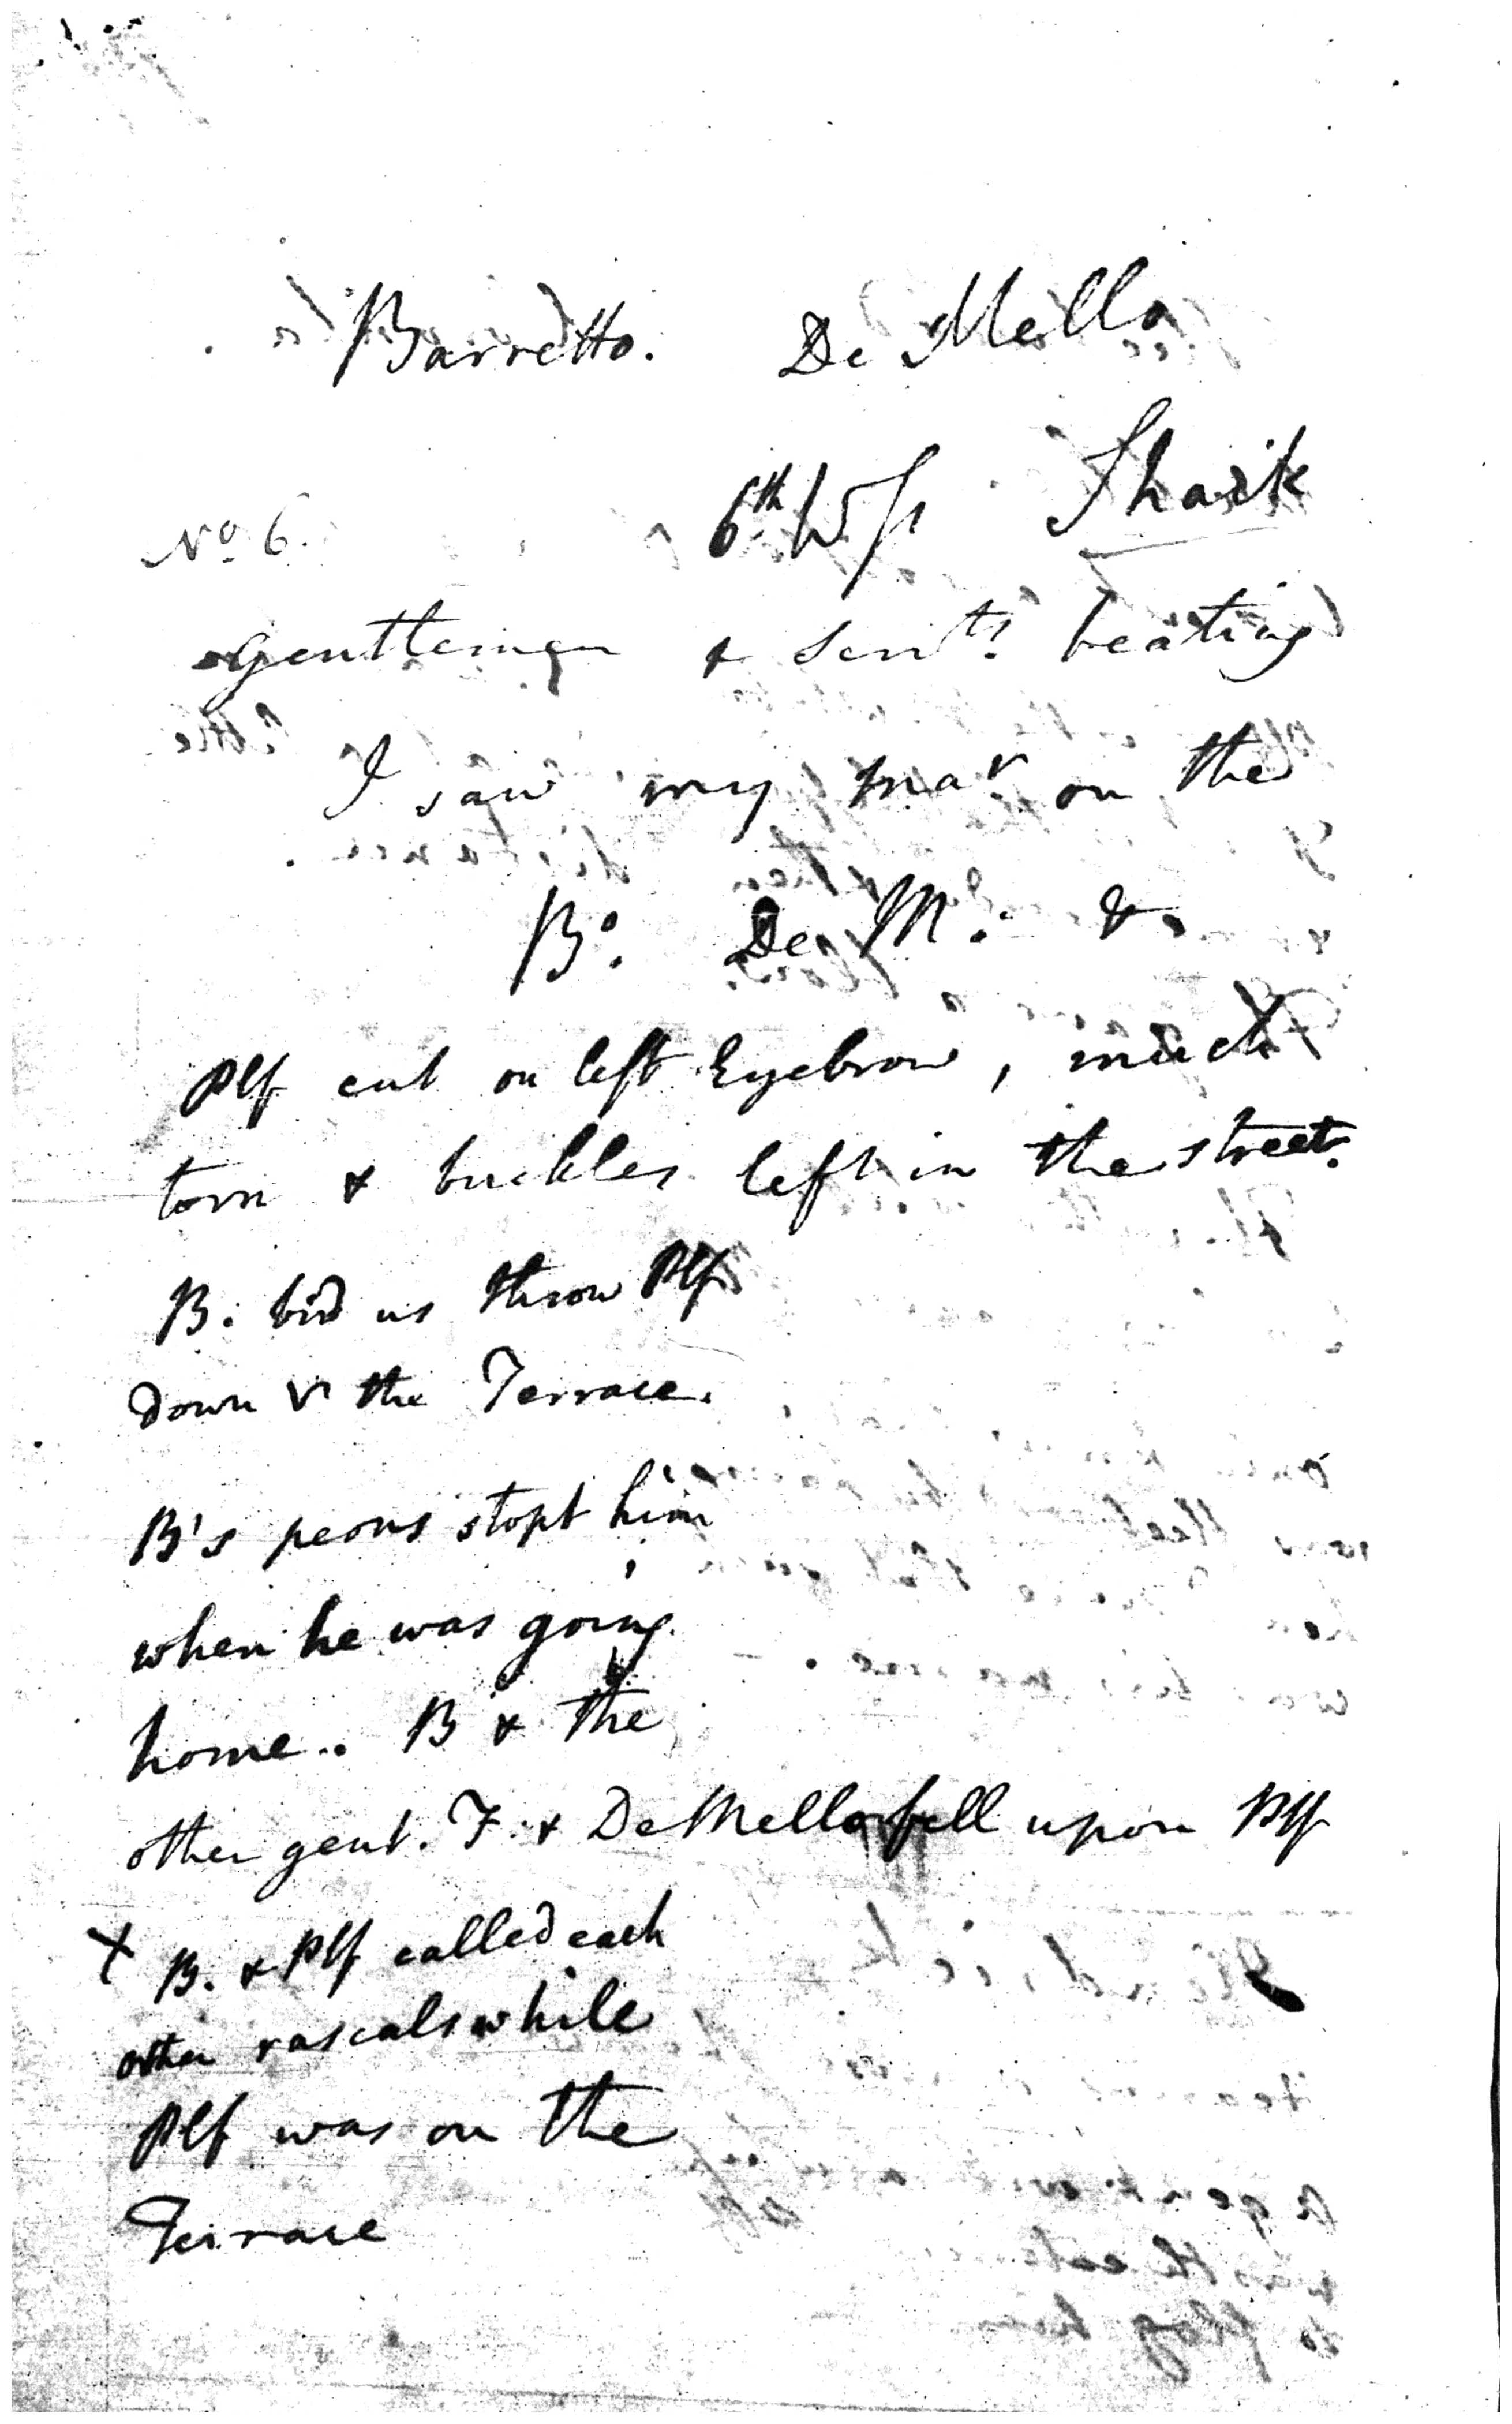 Barretto. De Mello
6th Wss Shaik
No 6.
Gentlemen & Servts beating
I saw my mar on the
Bo. De M. &
Plf cut on left Eyebrow, much
torn & buckles left in the street.
B. bid us throw Plf
down the Terrace.
B's peons stopt him
when he was going
home.. B & the
other gent. F. & De Mello fell upon Plf
X B. & Plf called each
other rascals while
Plf was on the
Terrace